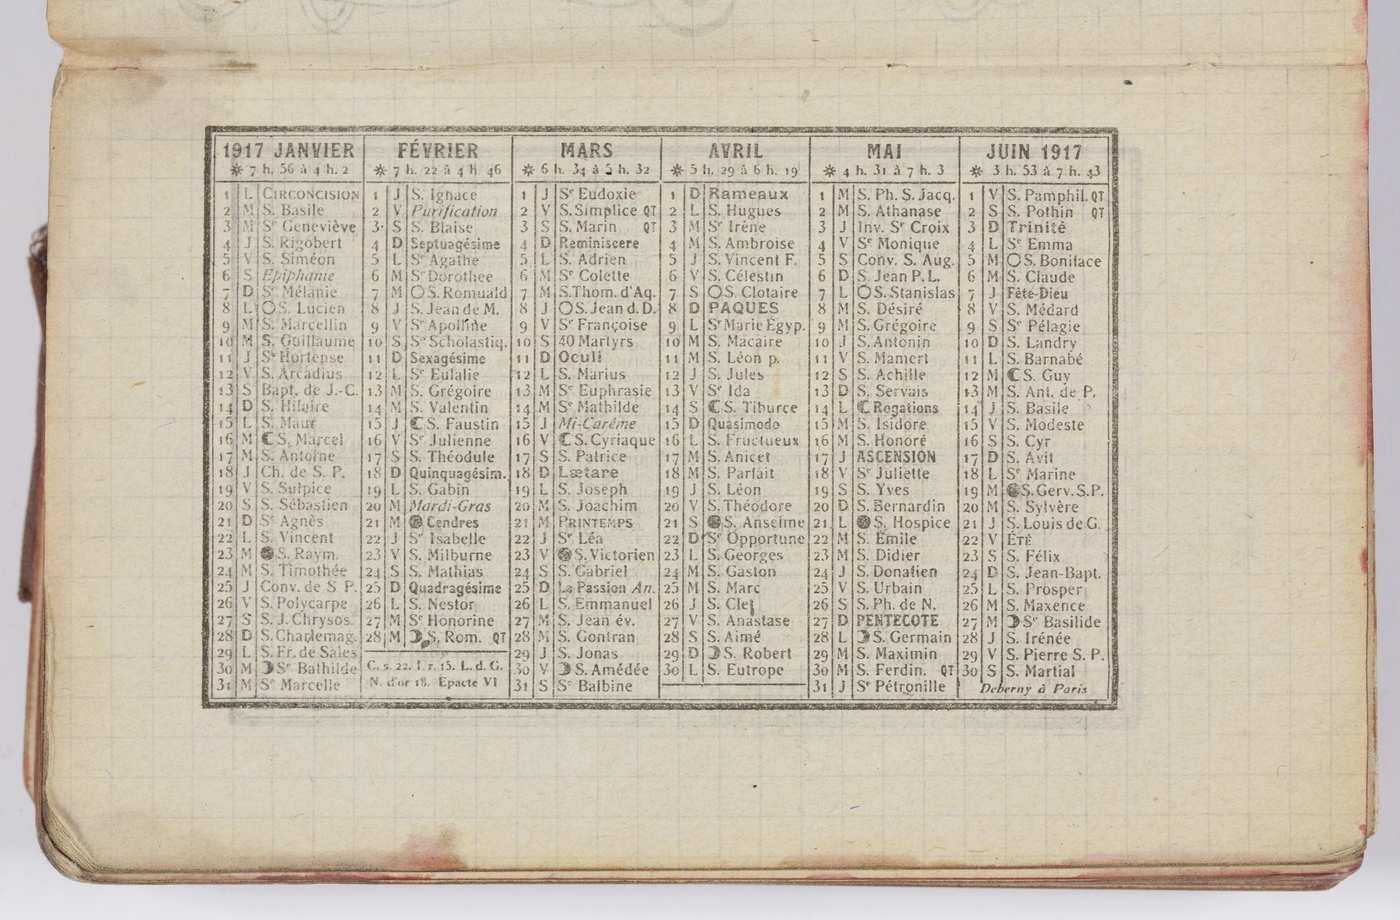 1917 JANVIER
☀ 7 h. 56 à 4 h. 2
1 L CIRCONCISION
2 M S. Basile
3 M Sᵉ Geneviève
4 J S. Rigobert
5 V S. Siméon
6 S Epiphanie
7 D Sᵉ Mélanie
8 L S. Lucien
9 M S. Marcellin
10 M S. Guillaume
11 J Sᵉ Hortense
12 V S. Arcadius
13 S Bapt. de J.-C.
14 D S. Hilaire
15 L S. Maur
16 M S. Marcel
17 M S. Antoine
18 J Ch. de S. P.
19 V S. Sulpice
20 S S. Sébastien
21 D Sᵉ Agnès
22 L S. Vincent
23 M S. Raym.
24 M S. Timothée
25 J Conv. de S P.
26 V S. Polycarpe
27 S S. J. Chrysos.
28 D S. Charlemag.
29 L S. Fr. de Sales
30 M Sᵉ Bathilde
31 M Sᵉ Marcelle
FÉVRIER
☀ 7 h. 22 à 4 h 46
1 J S. Ignace
2 V Purification
3 S S. Blaise
4 D Septuagésime
5 L Sᵉ Agathe
6 M Sᵉ Dorothee
7 M S. Romuald
8 J S. Jean de M.
9 V Sᵉ Apolline
10 S Sᵉ Scholastiq.
11 D Sexagésime
12 L Sᵉ Eulalie
13 M S. Grégoire
14 M S. Valentin
15 J S. Faustin
16 V Sᵉ Julienne
17 S S. Théodule
18 D Quinquagésim.
19 L S. Gabin
20 M Mardi-Gras
21 M Cendres
22 J Sᵉ Isabelle
23 V S. Milburne
24 S S. Mathias
25 D Quadragésime
26 L S. Nestor
27 M Sᵉ Honorine
28 M S. Rom. QT
C. s. 22. I. r. 15. L. d. G.
N. d'or 18. Epacte VI
MARS
☀ 6 h. 34 à 5 h. 32
1 J Sᵉ Eudoxie
2 V S. Simplice QT
3 S S. Marin QT
4 D Reminiscere
5 L S. Adrien
6 M Sᵉ Colette
7 M S. Thom. d'Aq.
8 J S. Jean d. D.
9 V Sᵉ Françoise
10 S 40 Martyrs
11 D Oculi
12 L S. Marius
13 M Sᵉ Euphrasie
14 M Sᵉ Mathilde
15 J Mi-Carême
16 V S. Cyriaque
17 S S. Patrice
18 D Lætare
19 L S. Joseph
20 M S. Joachim
21 M PRINTEMPS
22 J Sᵉ Léa
23 V S. Victorien
24 S S. Gabriel
25 D La Passion An.
26 L S. Emmanuel
27 M S. Jean év.
28 M S. Gontran
29 J S. Jonas
30 V S. Amédée
31 S Sᵉ Balbine
AVRIL
☀ 5 h. 29 à 6 h. 19
1 D Rameaux
2 L S. Hugues
3 M Sᵉ Irène
4 M S. Ambroise
5 J S. Vincent F.
6 V S. Célestin
7 S S. Clotaire
8 D PAQUES
9 L Sᵉ Marie Égyp.
10 M S. Macaire
11 M S. Léon p.
12 J S. Jules
13 V Sᵉ Ida
14 S S. Tiburce
15 D Quasimodo
16 L S. Fructueux
17 M S. Anicet
18 M S. Parfait
19 J S. Léon
20 V S. Théodore
21 S S. Anselme
22 D Sᵉ Opportune
23 L S. Georges
24 M S. Gaston
25 M S. Marc
26 J S. Clet
27 V S. Anastase
28 S S. Aimé
29 D S. Robert
30 L S. Eutrope
MAI
☀ 4 h. 31 à 7 h. 3
1 M S. Ph. S. Jacq.
2 M S. Athanase
3 J Inv. Sᵉ Croix
4 V Sᵉ Monique
5 S Conv. S. Aug.
6 D S. Jean P. L.
7 L S. Stanislas
8 M S. Désiré
9 M S. Grégoire
10 J S. Antonin
11 V S. Mamert
12 S S. Achille
13 D S. Servais
14 L Rogations
15 M S. Isidore
16 M S. Honoré
17 J ASCENSION
18 V Sᵉ Juliette
19 S S. Yves
20 D S. Bernardin
21 L S. Hospice
22 M S. Émile
23 M S. Didier
24 J S. Donatien
25 V S. Urbain
26 S S. Ph. de N.
27 D PENTECOTE
28 L S. Germain
29 M S. Maximin
30 M S. Ferdin. QT
31 J Sᵉ Pétronille
JUIN 1917
☀ 3 h. 53 à 7 h. 43
1 V S. Pamphil. QT
2 S S. Pothin QT
3 D Trinité
4 L Sᵉ Emma
5 M S. Boniface
6 M S. Claude
7 J Fête-Dieu
8 V S. Médard
9 S Sᵉ Pélagie
10 D S. Landry
11 L S. Barnabé
12 M S. Guy
13 M S. Ant. de P.
14 J S. Basile
15 V S. Modeste
16 S S. Cyr
17 D S. Avit
18 L Sᵉ Marine
19 M S. Gerv. S. P.
20 M S. Sylvère
21 J S. Louis de G.
22 V ÉTÉ
23 S S. Félix
24 D S. Jean-Bapt.
25 L S. Prosper
26 M S. Maxence
27 M Sᵉ Basilide
28 J S. Irénée
29 V S. Pierre S. P.
30 S S. Martial
Deberny à Paris